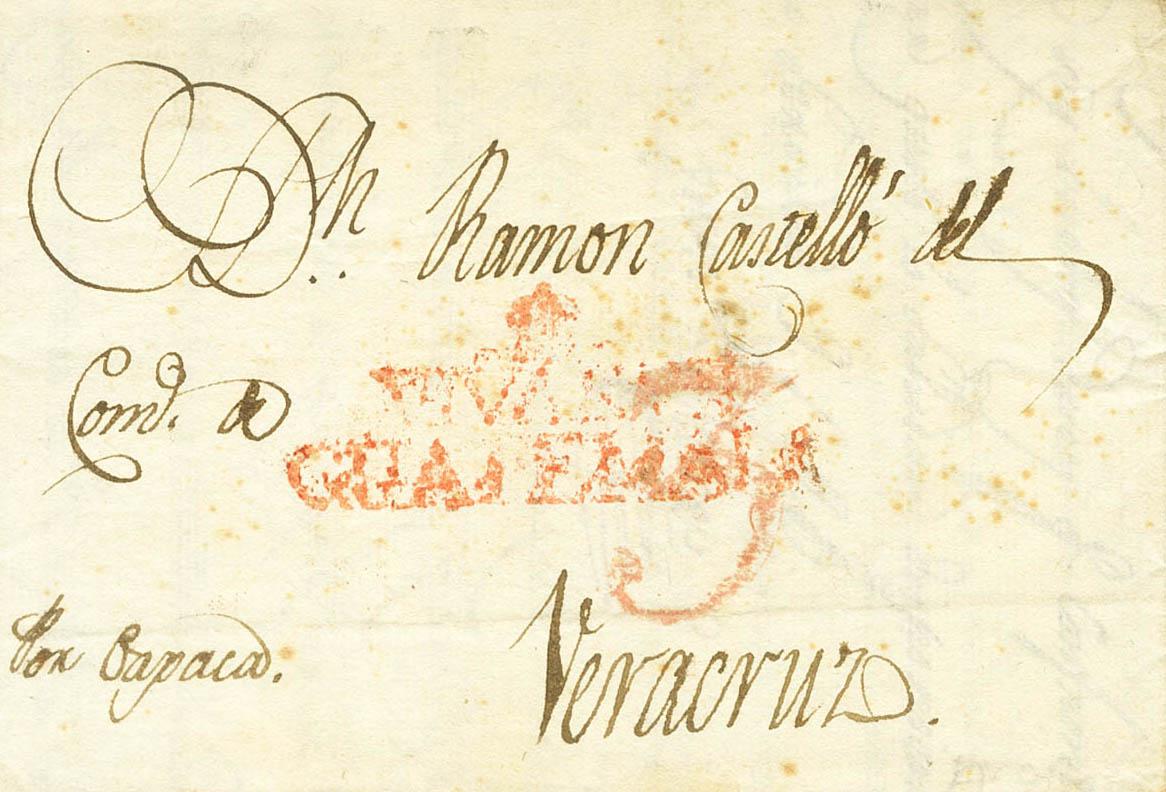 A Dn. Ramon Castelló del
Comº. de
GUATEMALA
3
Por Oaxaca.
Veracruz.